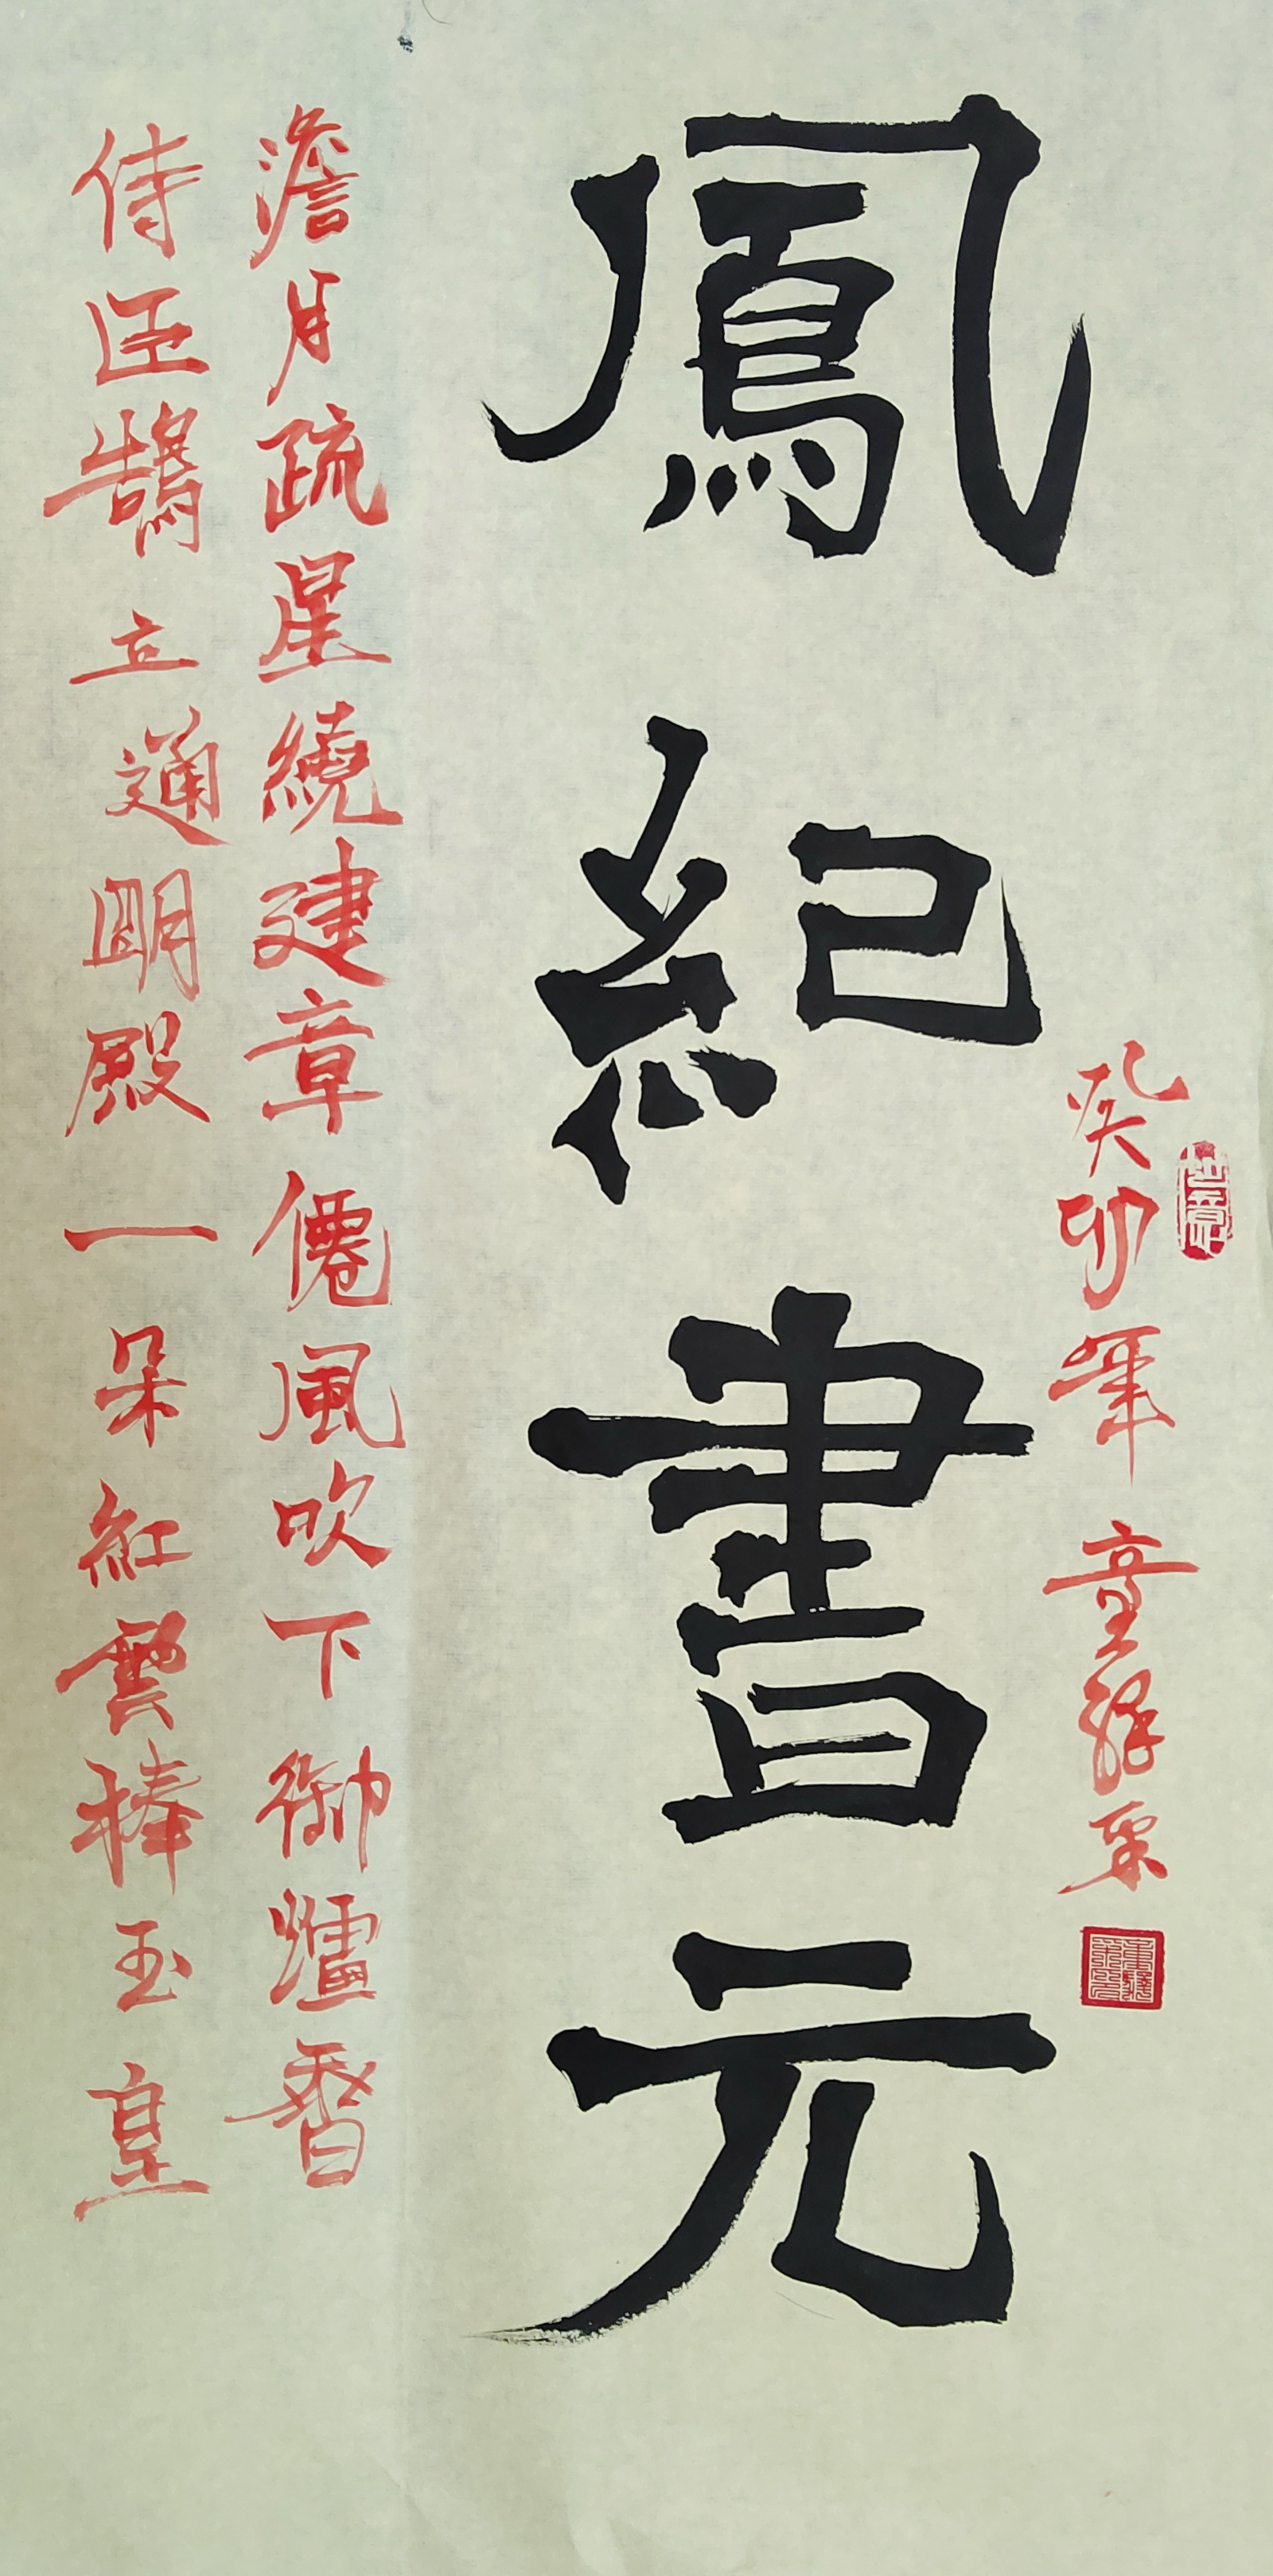 癸卯年 童
鳳紀書元
澹月疏星繞建章僊風吹下御爐香
侍臣鵠立通明殿一朵紅雲捧玉皇